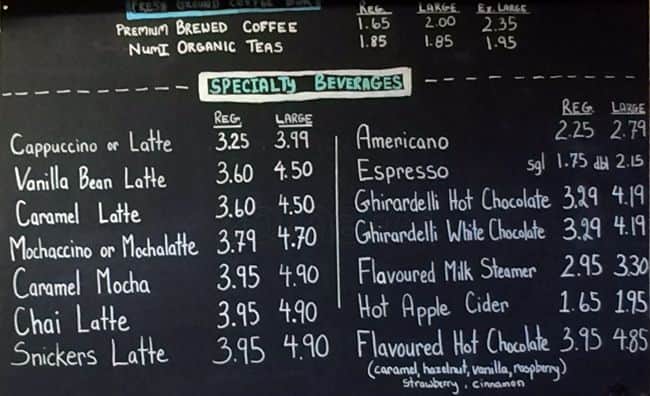 FRESH GROUND COFFEE
REG. LARGE EX. LARGE
PREMIUM BREWED COFFEE 1.65 2.00 2.35
NUMI ORGANIC TEAS 1.85 1.85 1.95
SPECIALTY BEVERAGES
REG. LARGE
Cappuccino or Latte 3.25 3.99
Vanilla Bean Latte 3.60 4.50
Caramel Latte 3.60 4.50
Mochaccino or Mochalatte 3.79 4.70
Caramel Mocha 3.95 4.90
Chai Latte 3.95 4.90
Snickers Latte 3.95 4.90
REG. LARGE
Americano 2.25 2.79
Espresso sgl 1.75 dbl 2.15
Ghirardelli Hot Chocolate 3.29 4.19
Ghirardelli White Chocolate 3.29 4.19
Flavoured Milk Steamer 2.95 3.30
Hot Apple Cider 1.65 1.95
Flavoured Hot Chocolate 3.95 4.85
(caramel, hazelnut, vanilla, raspberry)
strawberry, cinnamon